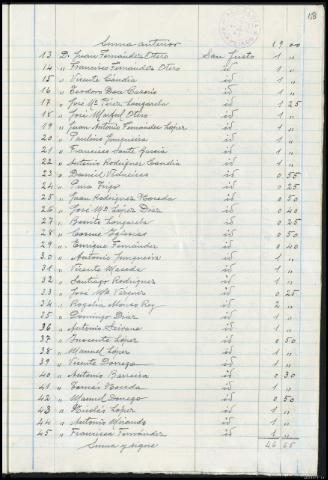 18
Suma anterior 19 00
13 D. Juan Fernández Otero San Justo 1 "
14 " Francisco Fernández Otero id 1 "
15 " Vicente Candia id 1 "
16 " Teodoro Bau id 1 "
17 " José Mª Pérez id 1 25
18 " José Otero id 1 "
19 " Juan Antonio Fernández López id 1 "
20 " Paulino Junqueira id 1 "
21 " Francisco García id 1 "
22 " Antonio Rodríguez Candia id 1 "
23 " Daniel id 0 55
24 " Pura Trigo id 0 25
25 " Juan Rodríguez id 0 50
26 " José Mª López Díaz id 0 40
27 " Benito id 0 25
28 " Cosme Iglesias id 0 50
29 " Enrique Fernández id 0 40
30 " Antonio Junqueira id 1 "
31 " Vicente Maseda id 1 "
32 " Santiago Rodríguez id 1 "
33 " José Mª id 0 25
34 " Rogelia Rey id 2 "
35 " Domingo Díaz id 1 "
36 " Antonio Seivane id 1 "
37 " Inocente López id 0 50
38 " Manuel López id 1 "
39 " Vicente Dorrego id 1 "
40 " Antonio Barreira id 0 30
41 " Tomás id 1 "
42 " Manuel Dorrego id 0 50
43 " Nicolás López id 1 "
44 " Antonio Miranda id 1 "
45 " Francisca Fernández id 1 "
Suma y sigue 46 65